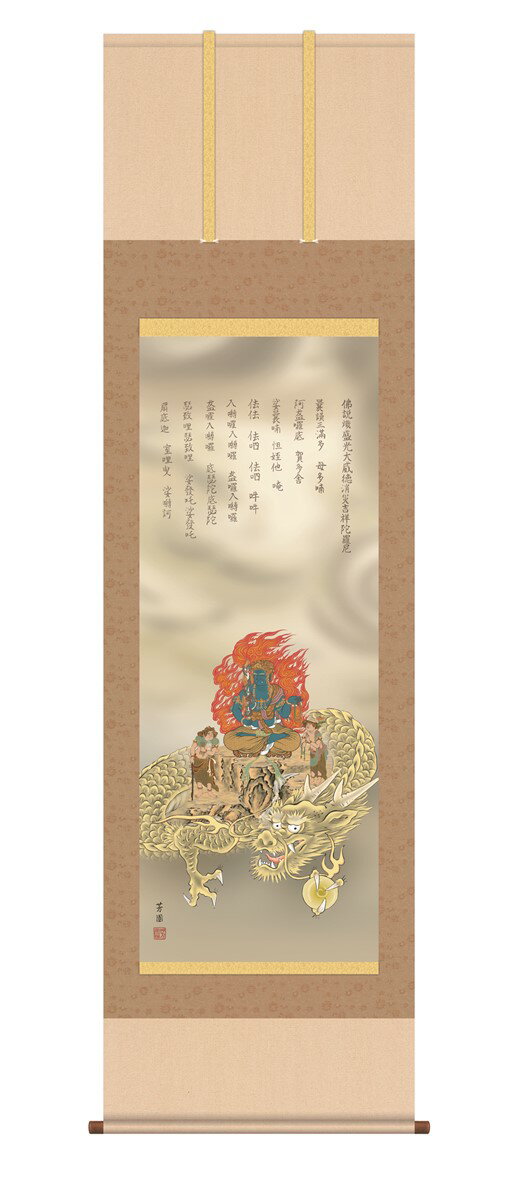 佛説熾盛光大威徳消災吉祥陀羅尼
曩謨三滿多 母多喃
阿盋囉底 賀多舍
娑曩喃 怛姪他 唵
佉佉 佉呬 佉呬 吽吽
入嚩囉入嚩囉 盋囉入嚩囉
盋囉入嚩囉 底瑟陀底瑟陀
瑟致哩瑟致哩 娑發吒娑發吒
扇底迦 室哩曳 娑嚩訶
芳園